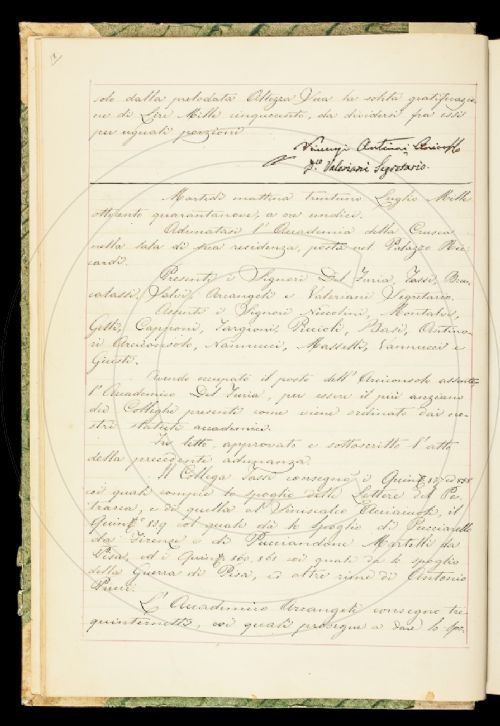 sto dalla prelodata Altezza Sua la solita gratificazio-
ne di Lire Mille cinquecento, da dividersi fra essi
per uguali porzioni
Vincenzio Antinori Arciconsolo
Valeriani Segretario
Martedì mattina trentuno Luglio Mille
ottocento quarantanove, a ore undici.
Adunatasi l'Accademia della Crusca
nella sala di sua residenza, posta nel Palazzo Ric-
cardi.
Presenti i Signori Del Furia, Tassi, Ben-
catassi, Salvi, Arcangeli e Valeriani Segretario.
Assenti i Signori Niccolini, Montalvi,
Gelli, Capponi, Targioni, Puccioti, Basi, Antino-
ri Arciconsolo, Nannucci, Masselli, Vannucci e
Giusti.
Avendo occupato il posto dell'Arciconsolo assente
l'Accademico Del Furia, per essere il più anziano
dei Colleghi presenti come viene ordinato dai no-
stri statuti accademici.
Fu letto, approvato e sottoscritto l'atto
della precedente adunanza.
Il Collega Tassi consegnò i Quint. 157 e 158
coi quali compie lo spoglio delle Lettere del Pe-
trarca, e di quella al Siniscalco Acciaiuoli, il
Quint. 159 col quale dà lo spoglio di
da Firenze e di Pucciandone Martelli da
Pisa, ed i Quint. 160, 161 coi quali dà lo spoglio
della Guerra di Pisa, ed altre rime di Antonio
Pucci.
L'Accademico Arcangeli consegnò tre
quinternetti, coi quali prosegue a dare lo spo-